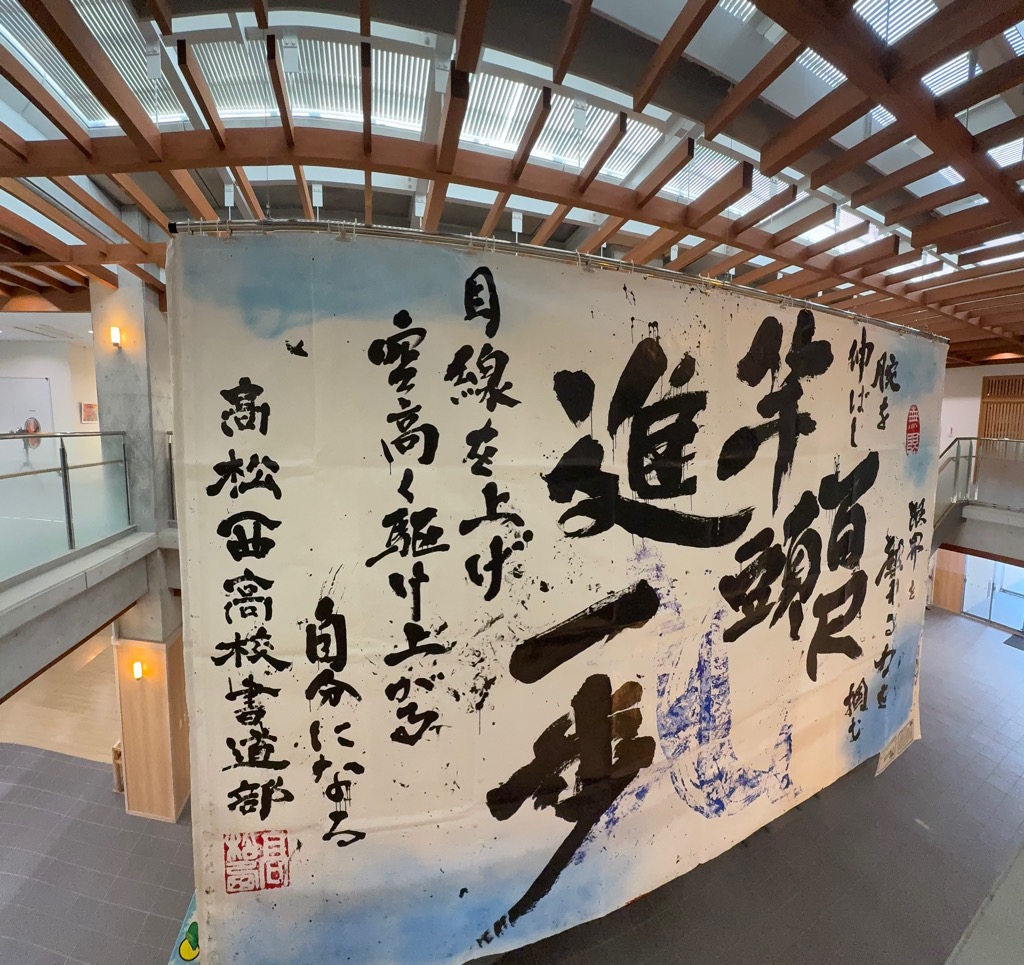 腕を
伸ばし
限界を
する力を
掴む
百尺
竿頭
進一歩
目線を上げ
空高く駆け上がる
自分になる
高松西高校書道部